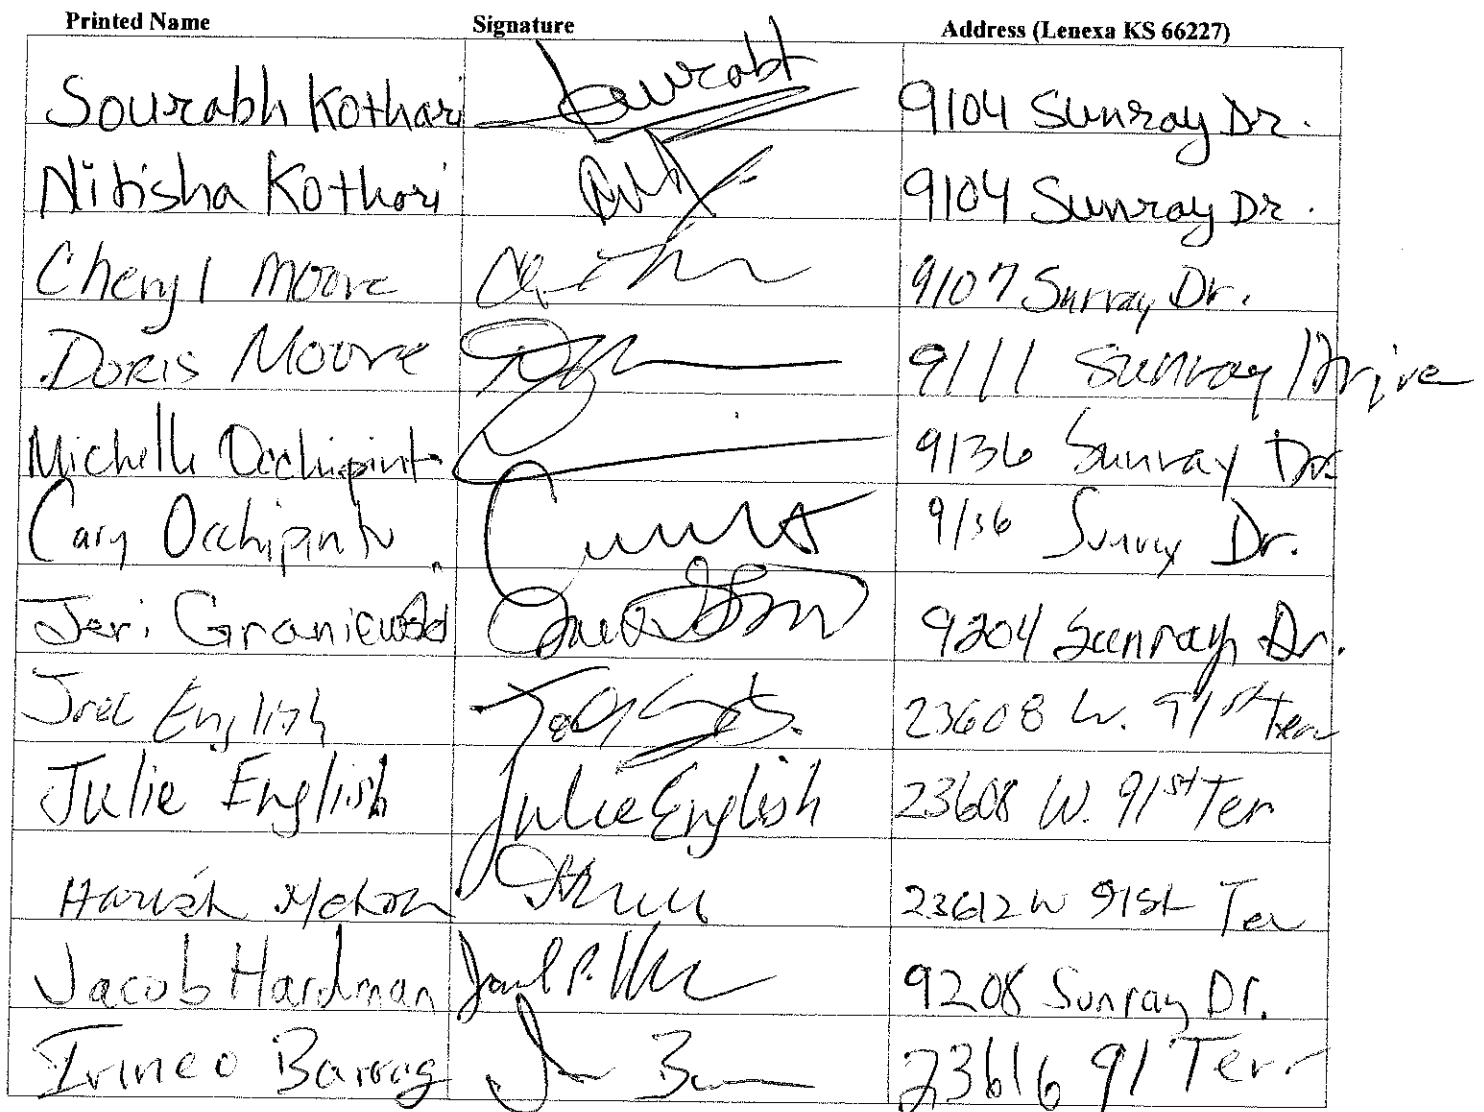 Printed Name Signature Address (Lenexa KS 66227)
Sourabh Kothari Sourabh 9104 Sunray Dr.
Nitisha Kothari 9104 Sunray Dr.
Cheryl Moore 9107 Sunray Dr.
Doris Moore 9111 Sunray Drive
Michelle Occhipinti 9136 Sunray Dr.
Cary Occhipinti 9136 Sunray Dr.
Jeri 9204 Sunray Dr.
Joel English 23608 W. 91st Terr
Julie English Julie English 23608 W. 91st Ter
Harish 23612 W 91st Ter
Jacob Hardman 9208 Sunray Dr.
Irineo 23616 91 Terr